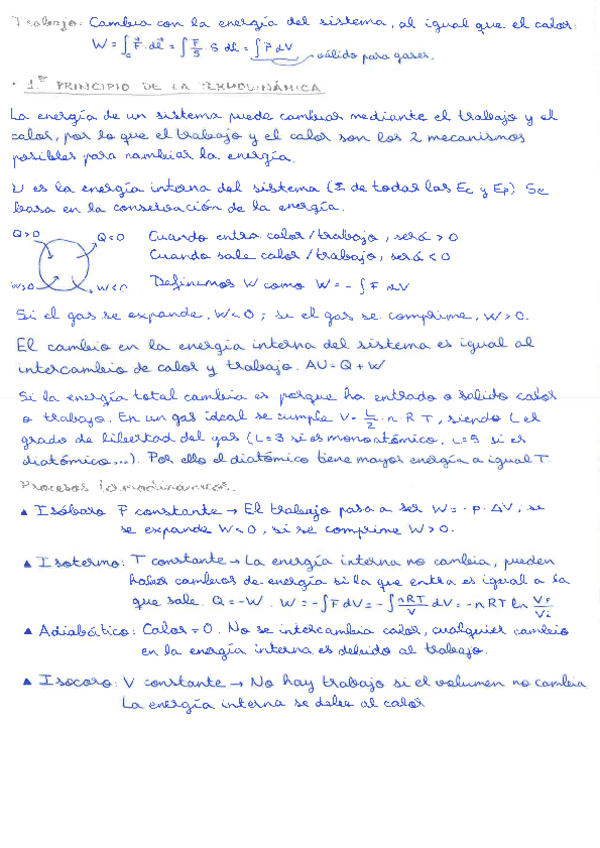 Trabajo: Cambia con la energía del sistema, al igual que el calor:
W = ∫₀ F⃗ · dl⃗ = ∫ F/S · S dl = ∫ P dV → válido para gases.
· 1.er PRINCIPIO DE LA TERMODINÁMICA
La energía de un sistema puede cambiar mediante el trabajo y el
calor, por lo que el trabajo y el calor son los 2 mecanismos
posibles para cambiar la energía.
U es la energía interna del sistema (Σ de todas las Ec y Ep) Se
basa en la conservación de la energía.
Q>0 Q<0 Cuando entra calor/trabajo, será >0
Cuando sale calor/trabajo, será <0
W>0 W<0 Definimos W como W = - ∫ F dV
Si el gas se expande, W<0; si el gas se comprime, W>0.
El cambio en la energía interna del sistema es igual al
intercambio de calor y trabajo. ΔU = Q + W
Si la energía total cambia es porque ha entrado o salido calor
o trabajo. En un gas ideal se cumple V = L/2 · n · R T, siendo L el
grado de libertad del gas (L=3 si es monoatómico, L=5 si es
diatómico,...). Por ello el diatómico tiene mayor energía a igual T.
Procesos termodinámicos.
▲ Isóbaro P constante → El trabajo pasa a ser W = - p · ΔV, si
se expande W<0, si se comprime W>0.
▲ Isotermo: T constante → La energía interna no cambia, pueden
haber cambios de energía si la que entra es igual a la
que sale. Q = -W. W = -∫ F dV = -∫ nRT/V dV = -nRT ln VF/Vi
▲ Adiabático: Calor = 0. No se intercambia calor, cualquier cambio
en la energía interna es debido al trabajo.
▲ Isocoro: V constante → No hay trabajo si el volumen no cambia
La energía interna se debe al calor